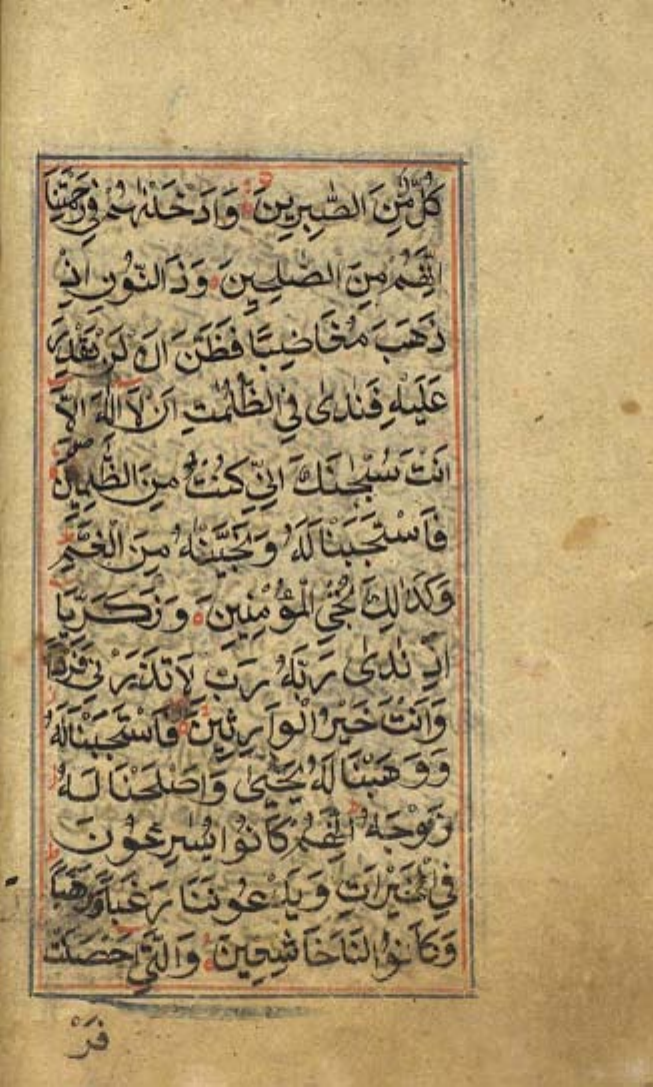 كُلٌّ مِّنَ الصّٰبِرِينَ وَاَدْخَلْنٰهُمْ فِي رَحْمَتِنَا
اِنَّهُمْ مِنَ الصّٰلِحِينَ وَذَا النُّونِ اِذْ
ذَهَبَ مُغَاضِبًا فَظَنَّ اَنْ لَنْ نَقْدِرَ
عَلَيْهِ فَنَادٰى فِي الظُّلُمٰتِ اَنْ لَا اِلٰهَ اِلَّا
اَنْتَ سُبْحٰنَكَ اِنِّي كُنْتُ مِنَ الظّٰلِمِينَ
فَاسْتَجَبْنَا لَهُ وَنَجَّيْنٰهُ مِنَ الْغَمِّ
وَكَذٰلِكَ نُنْجِي الْمُؤْمِنِينَ وَزَكَرِيَّا
اِذْ نَادٰى رَبَّهُ رَبِّ لَا تَذَرْنِي فَرْدًا
وَاَنْتَ خَيْرُ الْوَارِثِينَ فَاسْتَجَبْنَا لَهُ
وَوَهَبْنَا لَهُ يَحْيٰى وَاَصْلَحْنَا لَهُ
زَوْجَهُ اِنَّهُمْ كَانُوا يُسَرِعُونَ
فِي الْخَيْرَاتِ وَيَدْعُونَنَا رَغَبًا وَرَهَبًا
وَكَانُوا لَنَا خَاشِعِينَ وَالَّتِي اَحْصَنَتْ
فَرْ